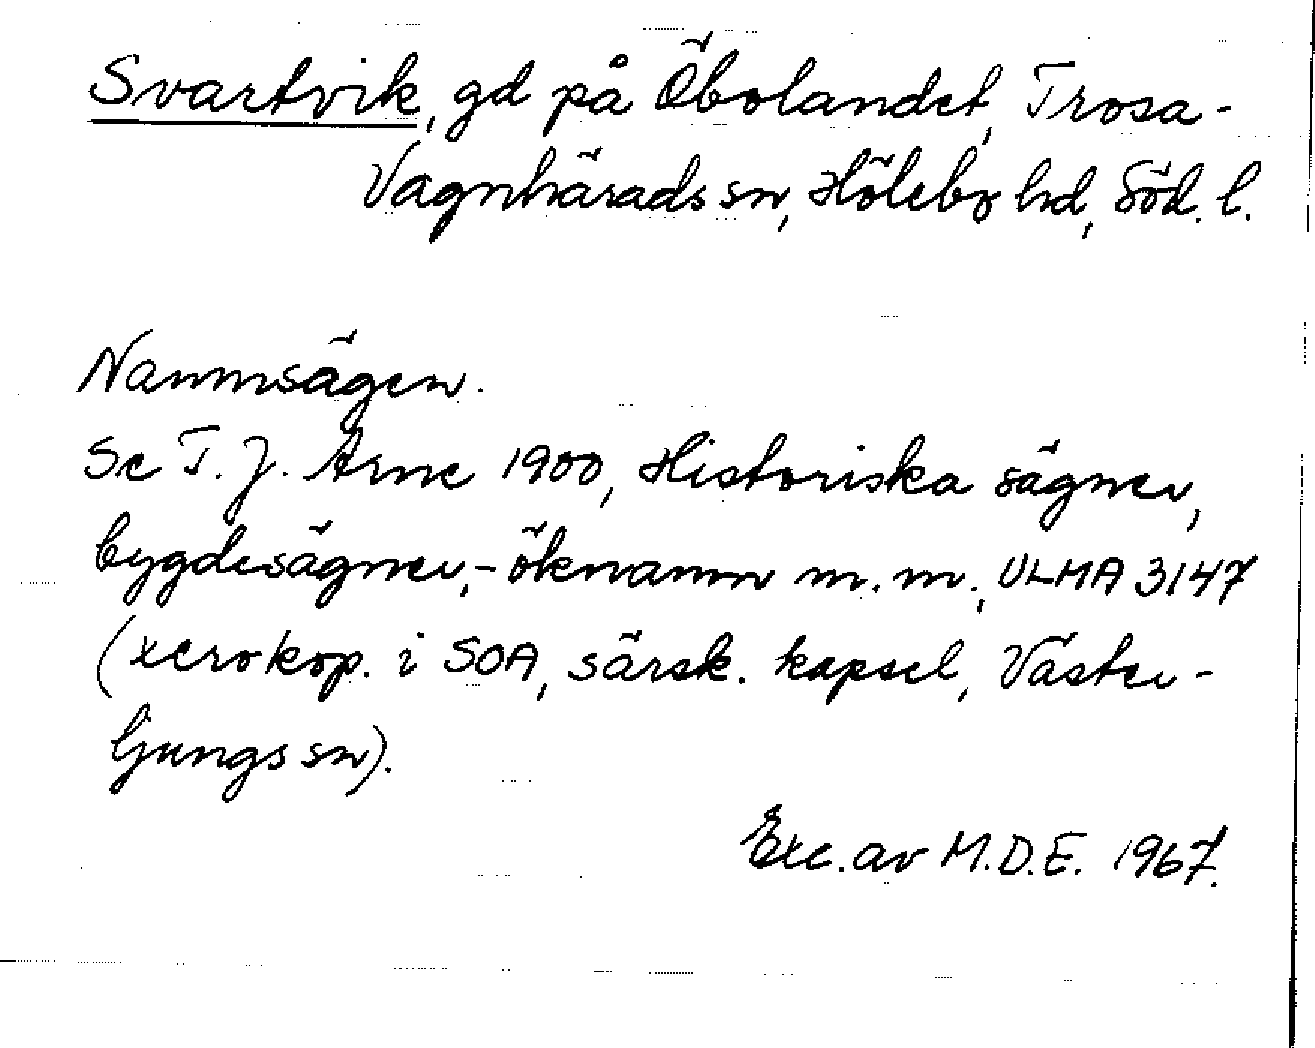 Svartvik, gd på Öbolandet, Trosa-
Vagnhärads sn, Hölebo hd, Söd. l.
Namnsägen.
Se T. J. Arne 1900, Historiska sägner,
bygdesägner, - öknamn m. m., ULMA 3147
(xerokop. i SOA, särsk. kapsel, Väster-
ljungs sn).
Exc. av M.D.E. 1967.